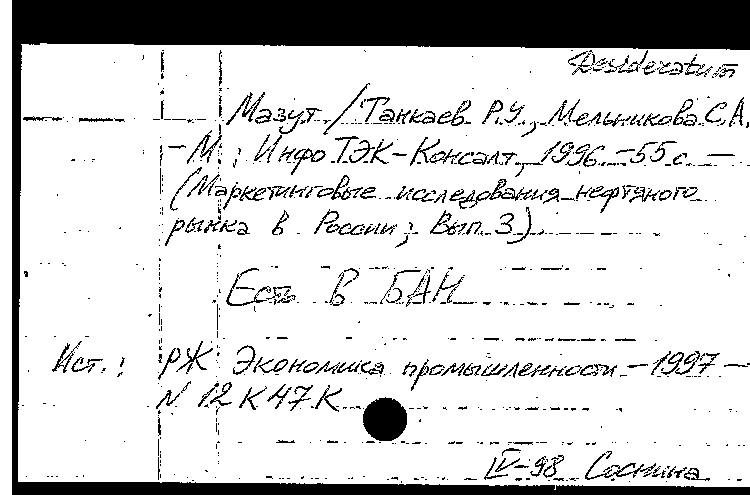 Desideratum
Мазут / Танкаев Р.У., Мельникова С.А.
- М.: ИнфоТЭК-Консалт, 1996. - 55 с. -
(Маркетинговые исследования нефтяного
рынка в России; Вып. 3).
Есть в БАН
Ист.: РЖ Экономика промышленности - 1997 -
N 12 К 47 К
IV-98 Соснина